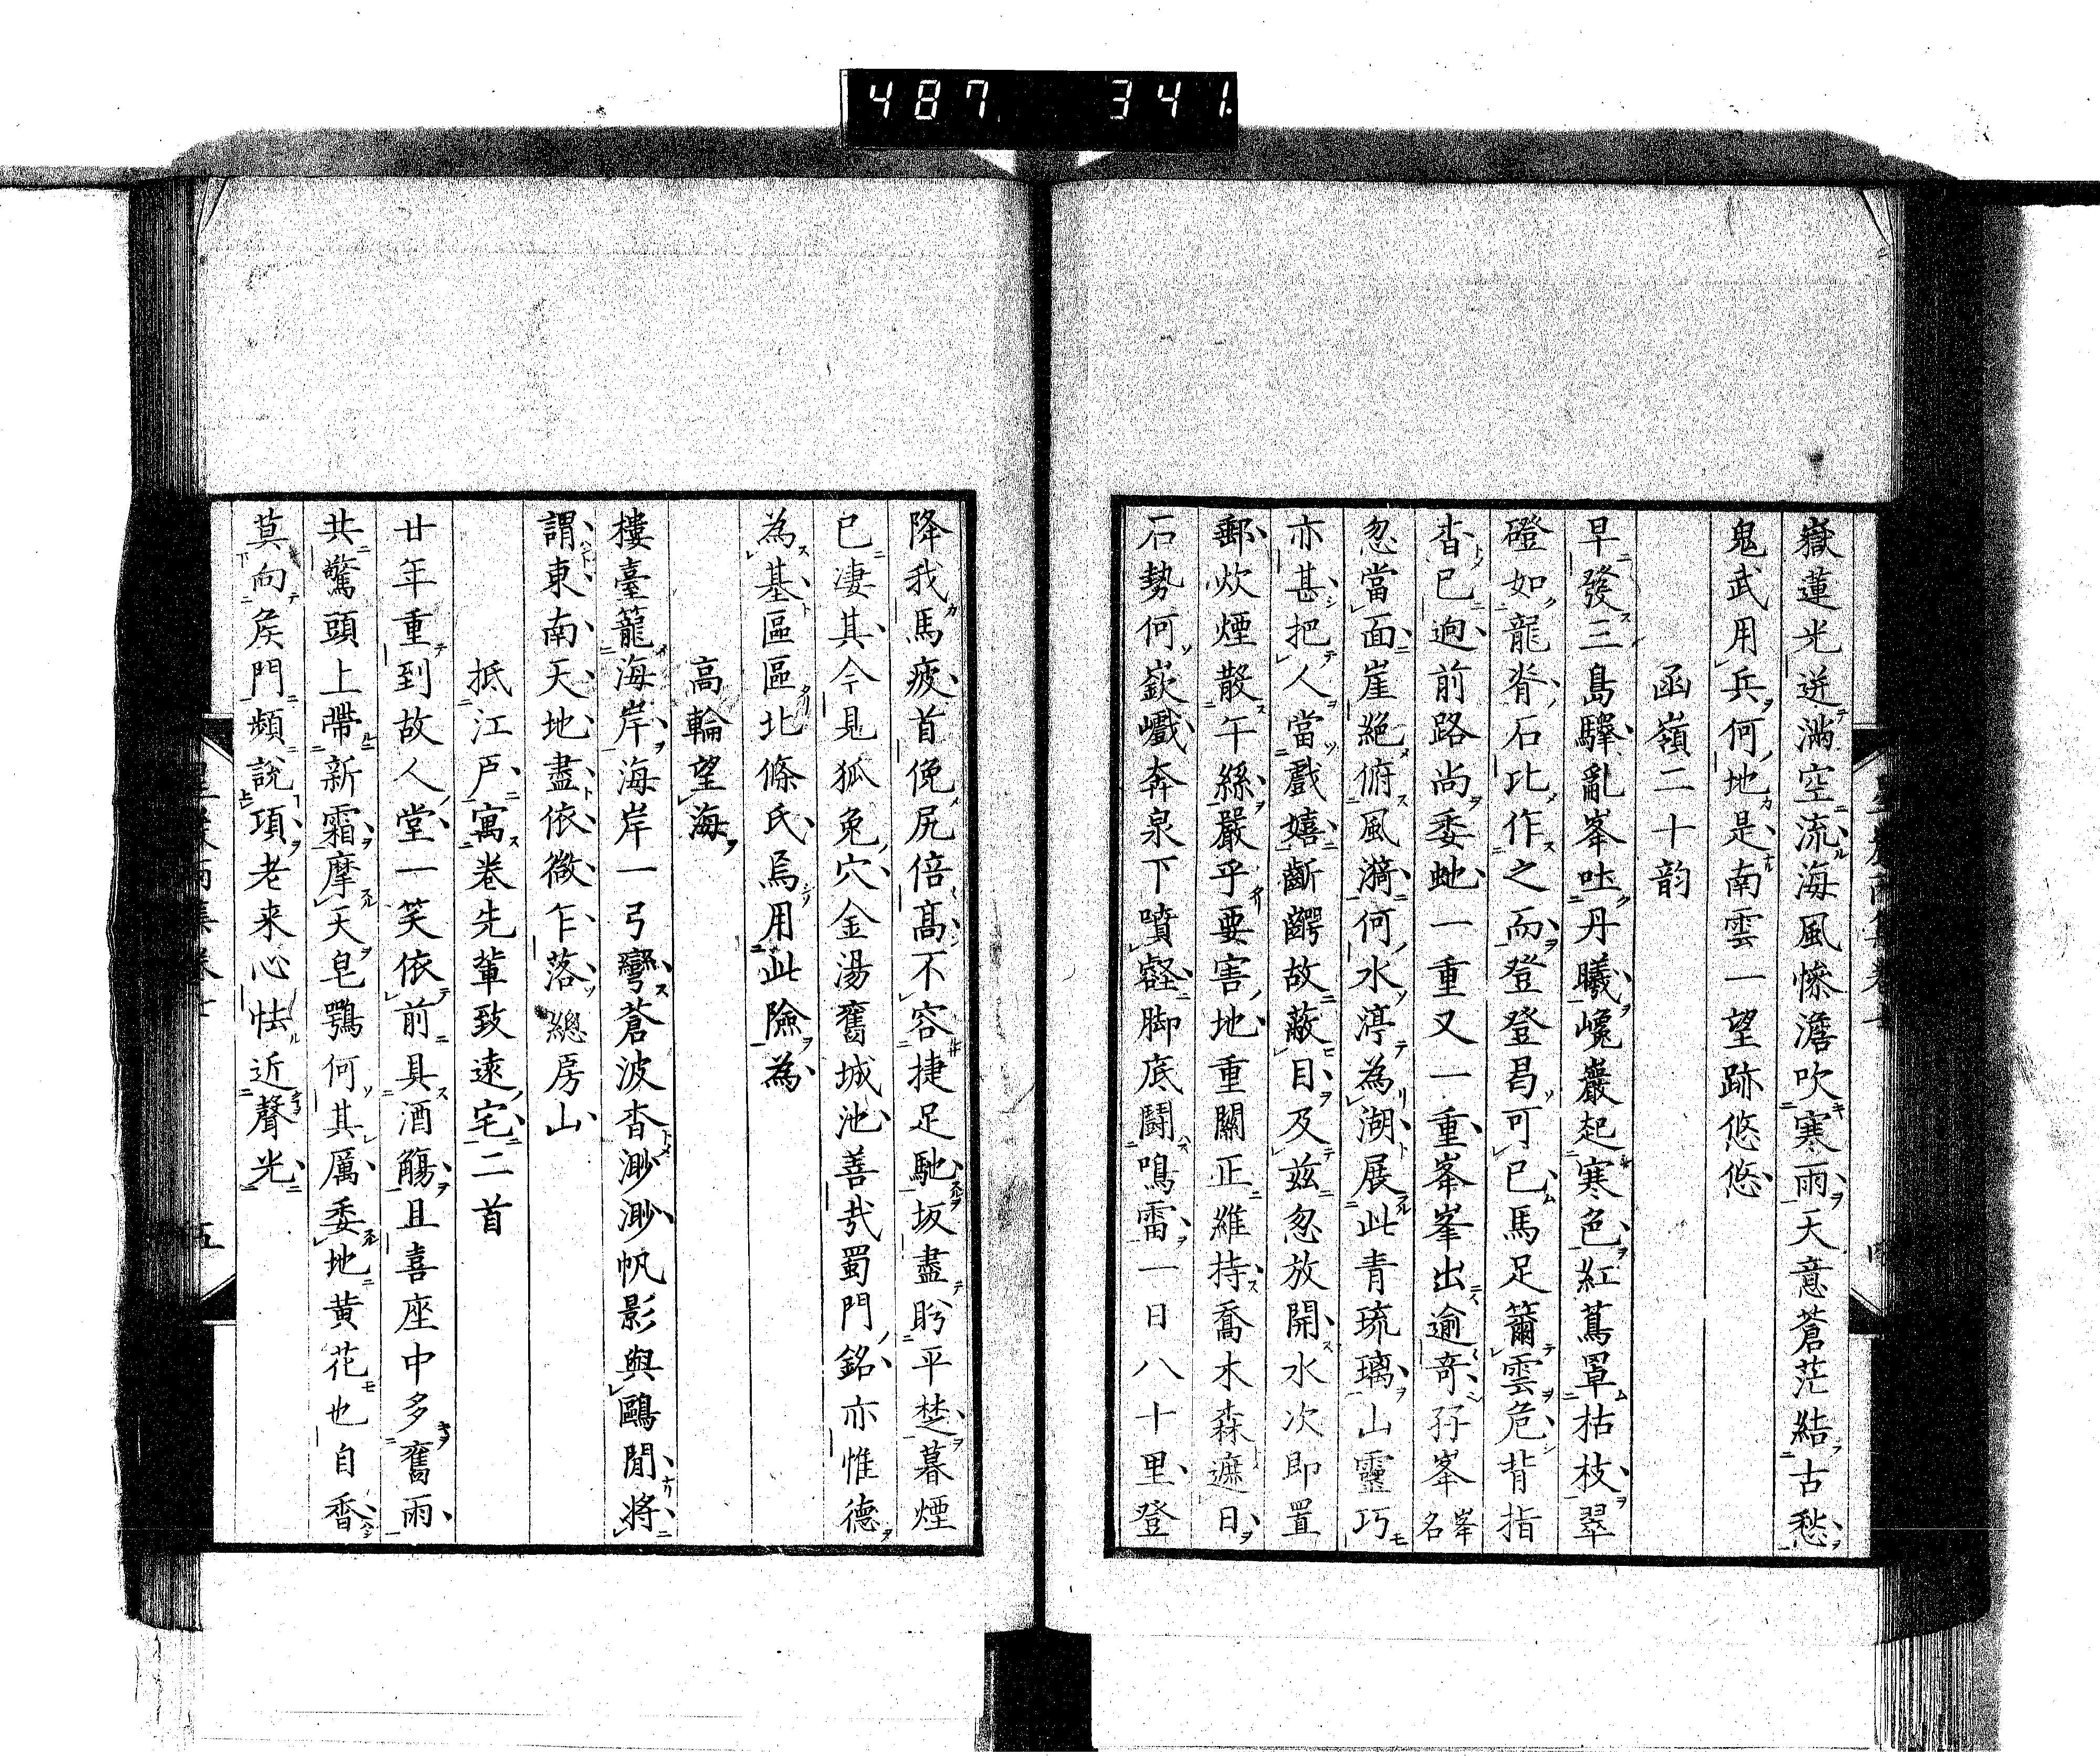 487 341
嶽蓮光迸滿空流海風慘澹吹寒雨天意蒼茫結古愁
鬼武用兵何地是南雲一望跡悠悠
函嶺二十韵
早發三島驛亂峯吐丹曦巉巖起寒色紅蔦罩枯枝翠
磴如龍脊石比作之而登登曷可已馬足籋雲危背指
杳已逈前路尚委虵一重又一重峯峯出逾奇孖峯峯名
忽當面崖絕俯風漪何水渟為湖展此青琉璃山靈巧
亦甚把人當戲嬉齗齶故蔽目及茲忽放開水次即置
郵炊煙散午絲嚴乎要害地重關正維持喬木森遮日
石勢何嶔巇奔泉下噴壑脚底鬪鳴雷一日八十里登
降我馬疲首俛尻倍高不容捷足馳坂盡盻平楚暮煙
已凄其今見狐兔穴金湯舊城池善哉蜀門銘亦惟德
為基區區北條氏烏用此險為
高輪望海
樓臺籠海岸海岸一弓彎蒼波杳渺渺帆影與鷗閒將
謂東南天地盡依微乍落總房山
抵江戶寓卷先輩致遠宅二首
廿年重到故人堂一笑依前具酒觴且喜座中多舊雨
共驚頭上帶新霜摩天皂鶚何其厲委地黃花也自香
莫向矦門頻說項老来心怯近聲光
五